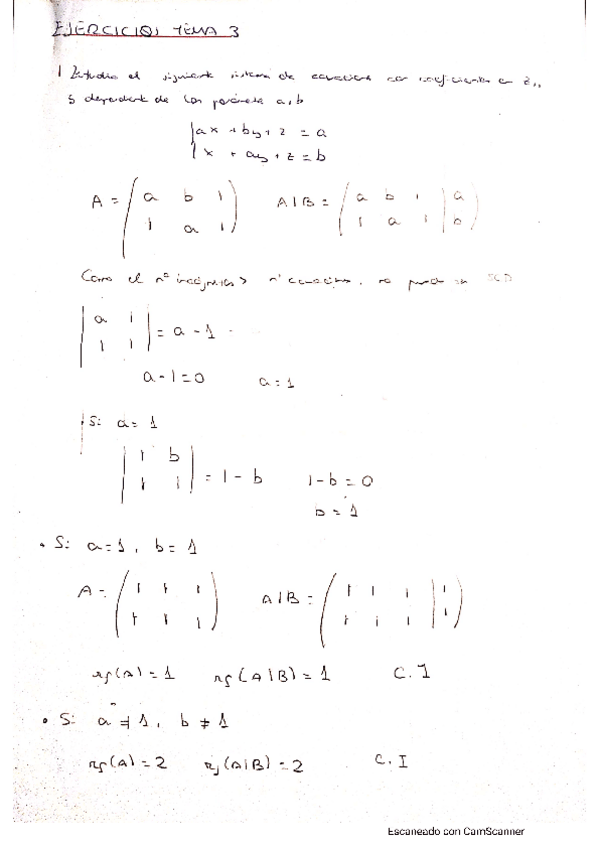 EJERCICIOS TEMA 3
1 Estudia el siguiente sistema de ecuaciones con coeficientes en Z
y dependiente de los parámetros a, b
ax + by + z = a
x + ay + z = b
A = ( a b 1 A|B = ( a b 1 | a
1 a 1 ) 1 a 1 | b )
Como el nº incógnitas > nº ecuaciones, no puede ser SCD
| a 1
1 1 | = a - 1
a - 1 = 0 a = 1
Si a = 1
| 1 b
1 1 | = 1 - b 1 - b = 0
b = 1
• Si a = 1, b = 1
A = ( 1 1 1 A|B = ( 1 1 1 | 1
1 1 1 ) 1 1 1 | 1 )
rg(A) = 1 rg(A|B) = 1 C.I
• Si a ≠ 1, b ≠ 1
rg(A) = 2 rg(A|B) = 2 C.I
Escaneado con CamScanner